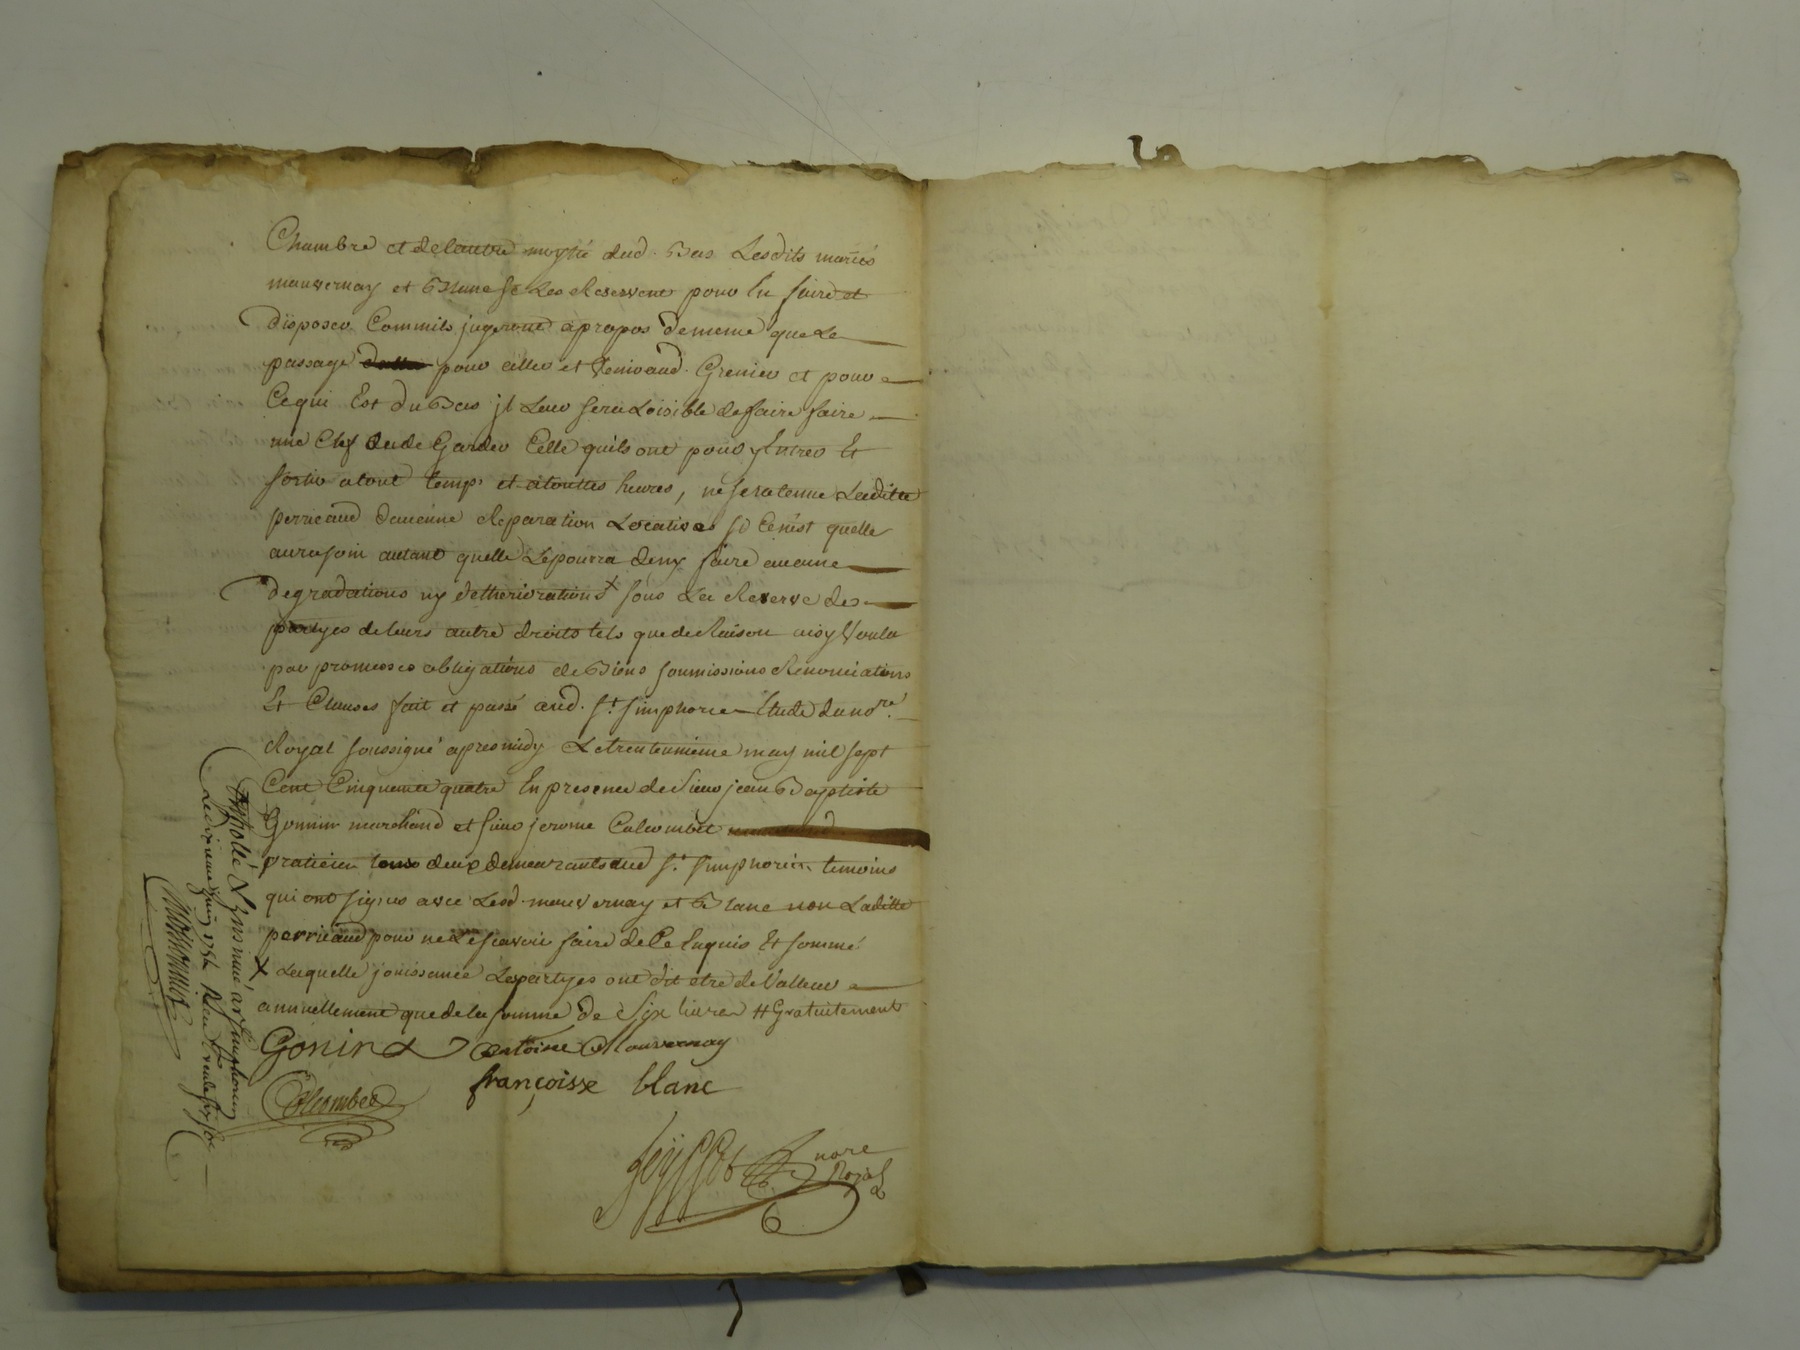 Chambre et de lautre moytié dud. Bas Lesdits mariés
mauvernay et Blanc se Les Reservent pour En faire et
disposer Comm'ils jugeront apropos de meme que Le
passage pour aller et Venir aud. Grenier et pour
Ce qui Est du Bas jl Leur sera Loisible de faire faire
une Clef de Garder Celle quils ont pour y Entrer Et
sortir a tout temps et a touttes heures, ne sera tenue Laditte
perricaud daucune Reparation Locatives si Ce n'est quelle
aura soin autant quelle Le pourra de ny faire aucune
degradations ny detheriorations x sous La Reserve des
partyes de Leurs autre droits tels que de Raison ainsy Voulu
par promesses obligations de Biens soumissions Renonciations
Et Clauses fait et passé aud. St. simphorien Etude du nore.
Royal soussigné apres midy Le trente unieme may mil sept
Cent Cinquante quatre En presence de sieur jean Baptiste
Gonin marchand et sieur jerome Colcombet
praticien tous deux demeurants aud St. simphorien temoins
qui ont signés avec Lesd. mauvernay et Blanc non Laditte
perricaud pour ne Le scavoir faire de Ce Enquis Et sommé
x Laquelle jouissance Les partyes ont dit etre de Valleur
annuellement que de la somme de Six livres # Gratuitement
Gonin
antoine Mauvernay
françoisse blanc
Colcombet
nore
Royal
Controllé &amp; Insinué a St Simphorien
juin 1754